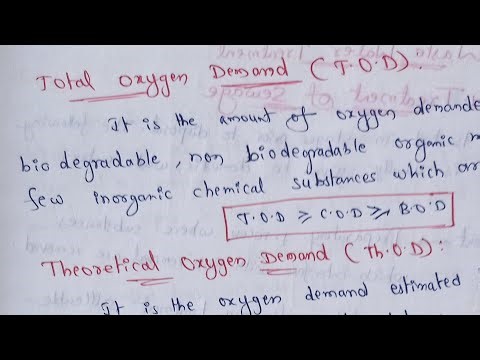 Total Oxygen Demand (T.O.D).
It is the amount of oxygen demande
biodegradable, non biodegradable organic
few inorganic chemical substances which
T.O.D ≥ C.O.D ≥ B.O.D
Theoretical Oxygen Demand (Th.O.D):
It is the oxygen demand estimated